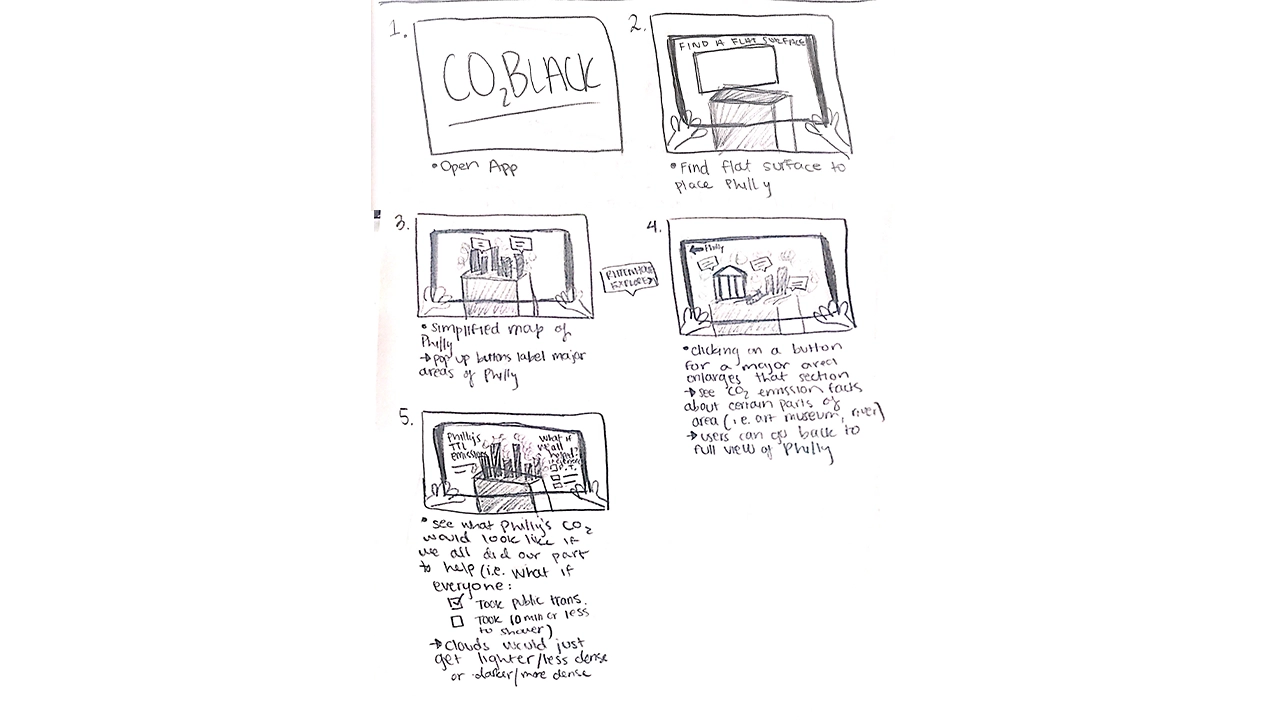 1.
CO₂BLACK
• Open App
2.
FIND A FLAT SURFACE
• Find flat surface to
place Philly
3.
• Simplified map of
Philly
→ pop up buttons label major
areas of Philly
EXPLORE
4.
← Philly
• clicking on a button
for a major area
enlarges that section
→ see CO₂ emission facts
about certain parts of
area (i.e. art museum, river)
→ users can go back to
full view of Philly
5.
Philly's
TTL
emissions
What if
we all
helped?
P.T.
• see what Philly's CO₂
would look like if
we all did our part
to help (i.e. what if
everyone:
☑ Took public trans.
☐ Took 10 min or less
to shower)
→ clouds would just
get lighter/less dense
or darker/more dense